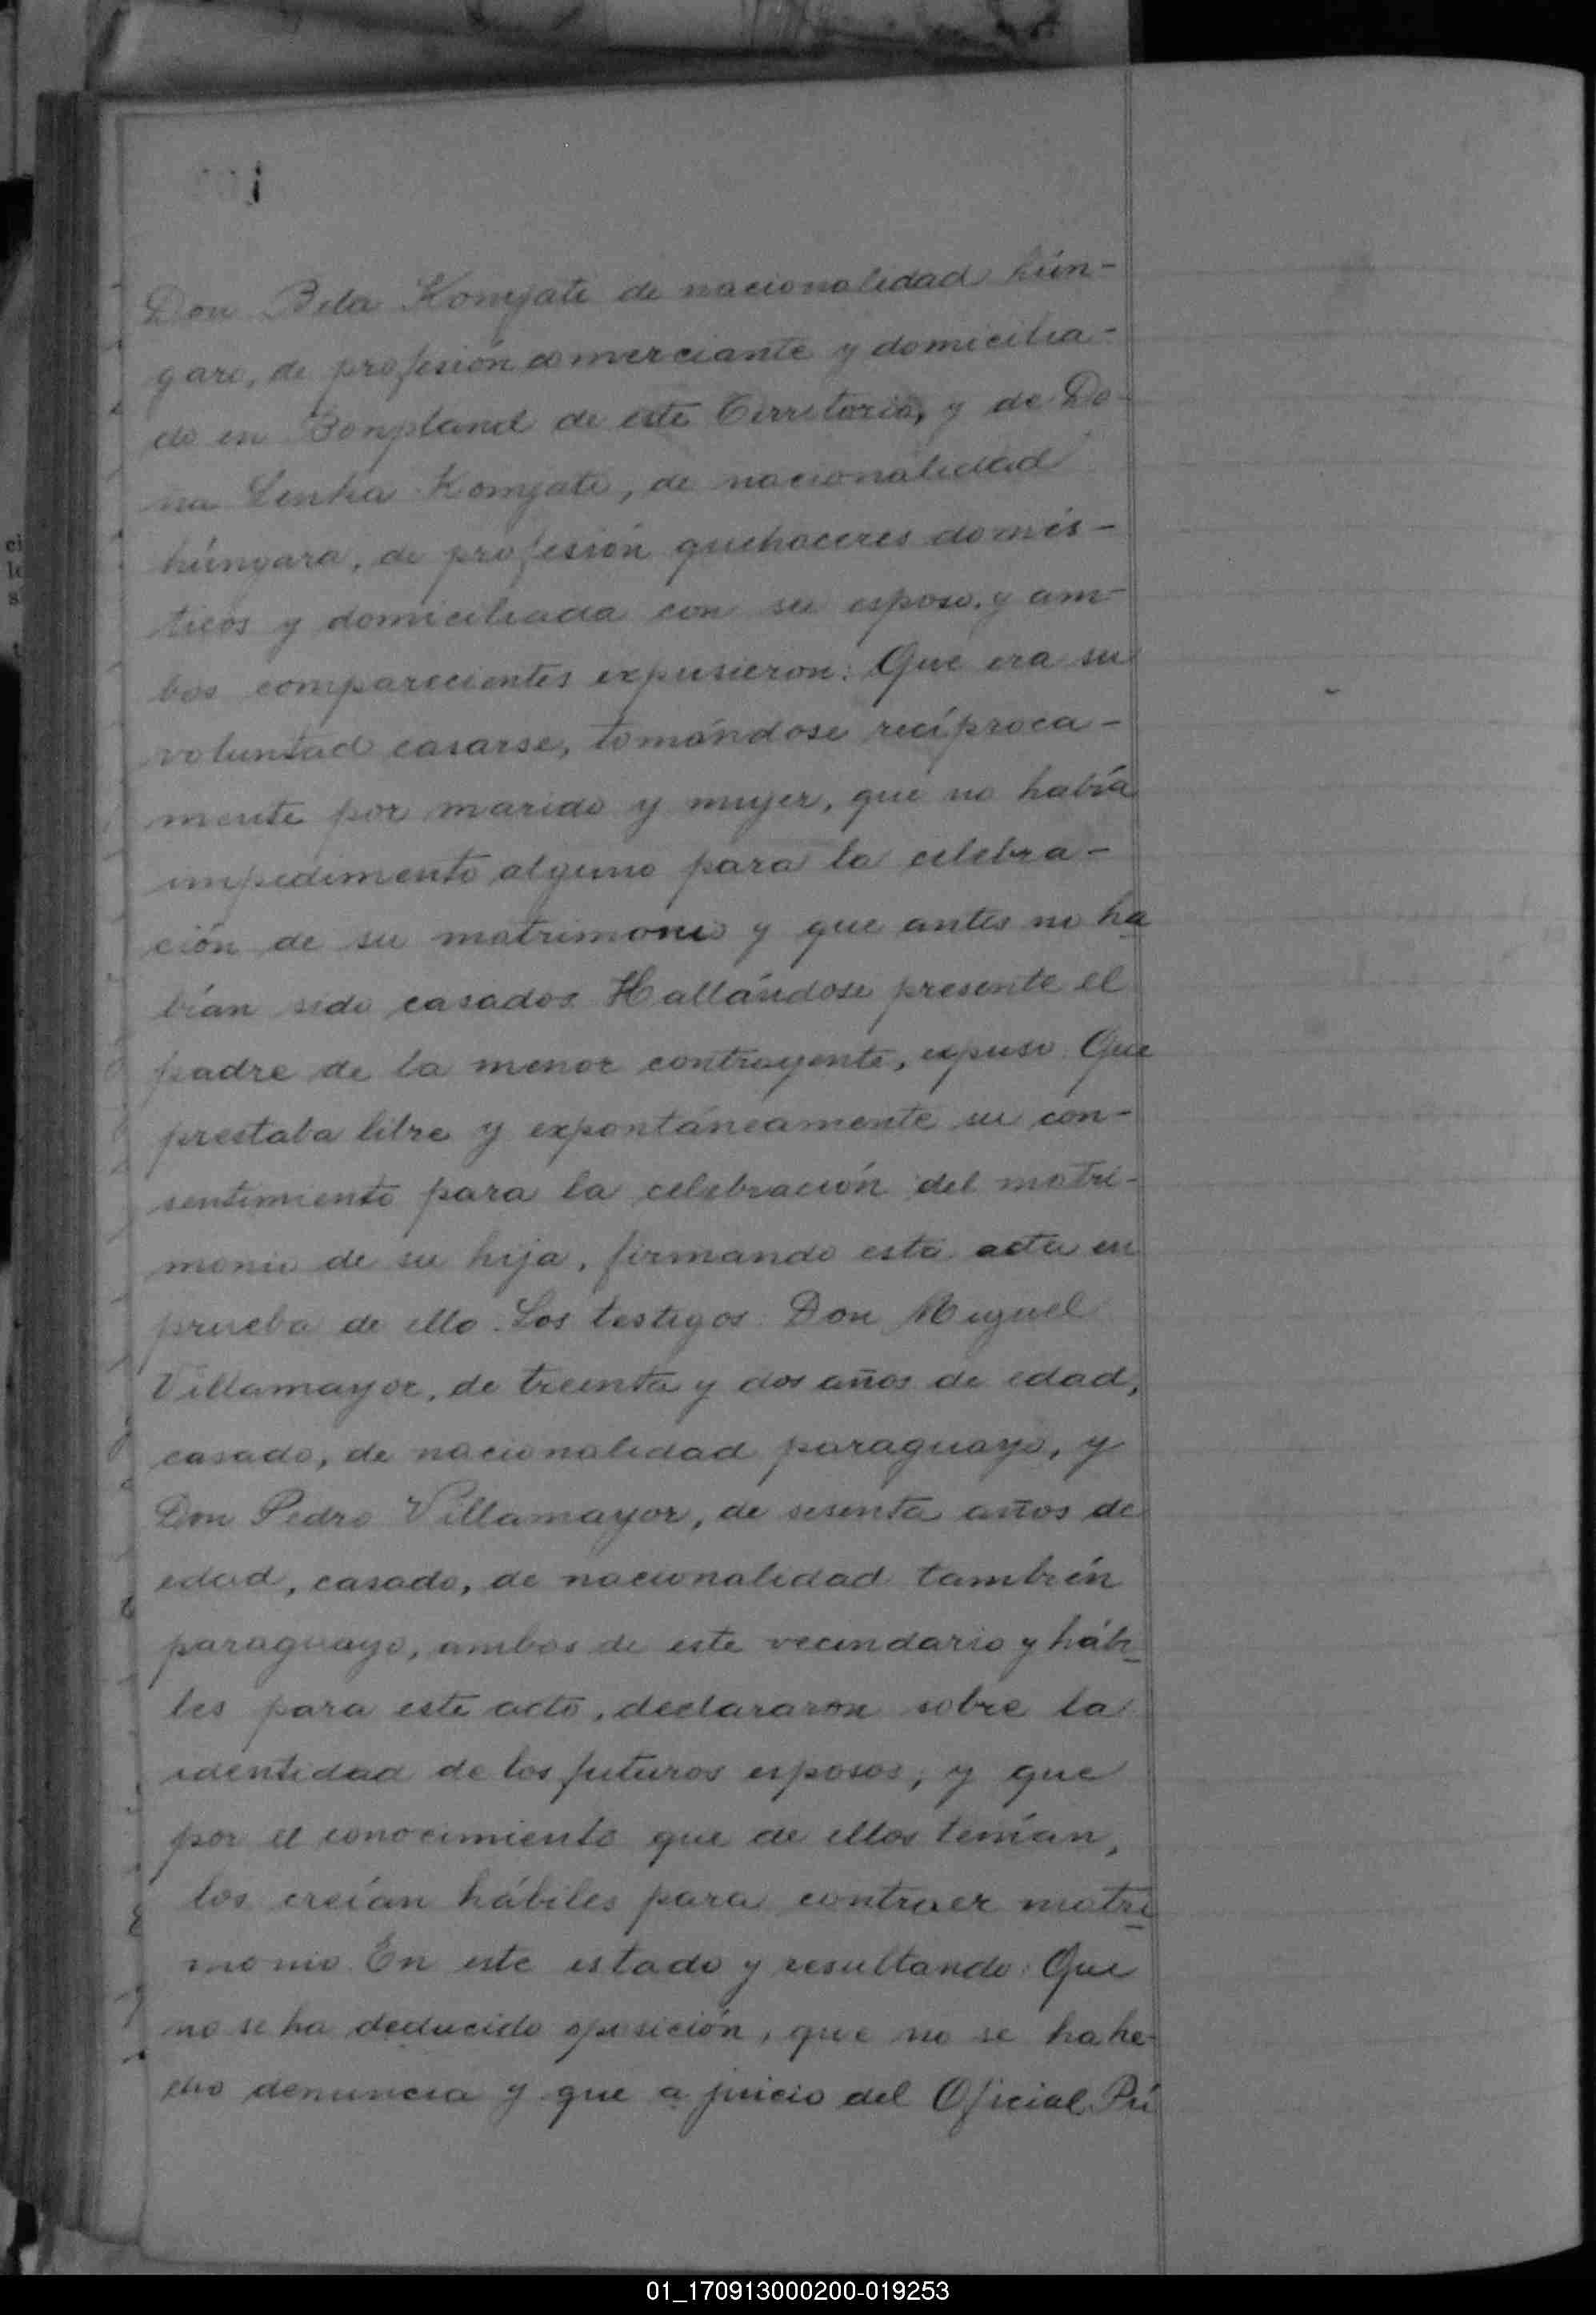 Don Bela Komjati de nacionalidad hún-
garo, de profesión comerciante y domicilia-
do en Bonpland de este Territorio, y de Do-
na Lenka Komjati, de nacionalidad
húngara, de profesión quehaceres domés-
ticos y domiciliada con su esposo, y am-
bos comparecientes expusieron: Que era su
voluntad casarse, tomándose recíproca-
mente por marido y mujer, que no había
impedimento alguno para la celebra-
ción de su matrimonio y que antes no ha
bían sido casados. Hallándose presente el
padre de la menor contrayente, expuso: Que
prestaba libre y expontáneamente su con-
sentimiento para la celebración del matri-
monio de su hija, firmando esta acta en
prueba de ello. Los testigos: Don Miguel
Villamayor, de treinta y dos años de edad,
casado, de nacionalidad paraguayo, y
Don Pedro Villamayor, de sesenta años de
edad, casado, de nacionalidad también
paraguayo, ambos de este vecindario y hábi
les para este acto, declararon sobre la
identidad de los futuros esposos, y que
por el conocimiento que de ellos tenían,
los creían hábiles para contraer matri
monio. En este estado y resultando: Que
no se ha deducido oposición, que no se ha he-
cho denuncia y que a juicio del Oficial Pú
01_170913000200-019253